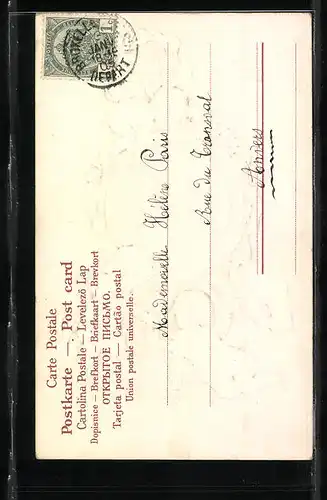 Carte Postale
Postkarte — Post card
Cartolina Postale — Levelező Lap
Dopisnice — Brefkort — Briefkaart — Brevkort
ОТКРЫТОЕ ПИСЬМО.
Tarjeta postal — Cartão postal
Union postale universelle.
BRUXELLES
JANV
DEPART
1
Mademoiselle Hélène Paris
Rue du Transval
Anvers